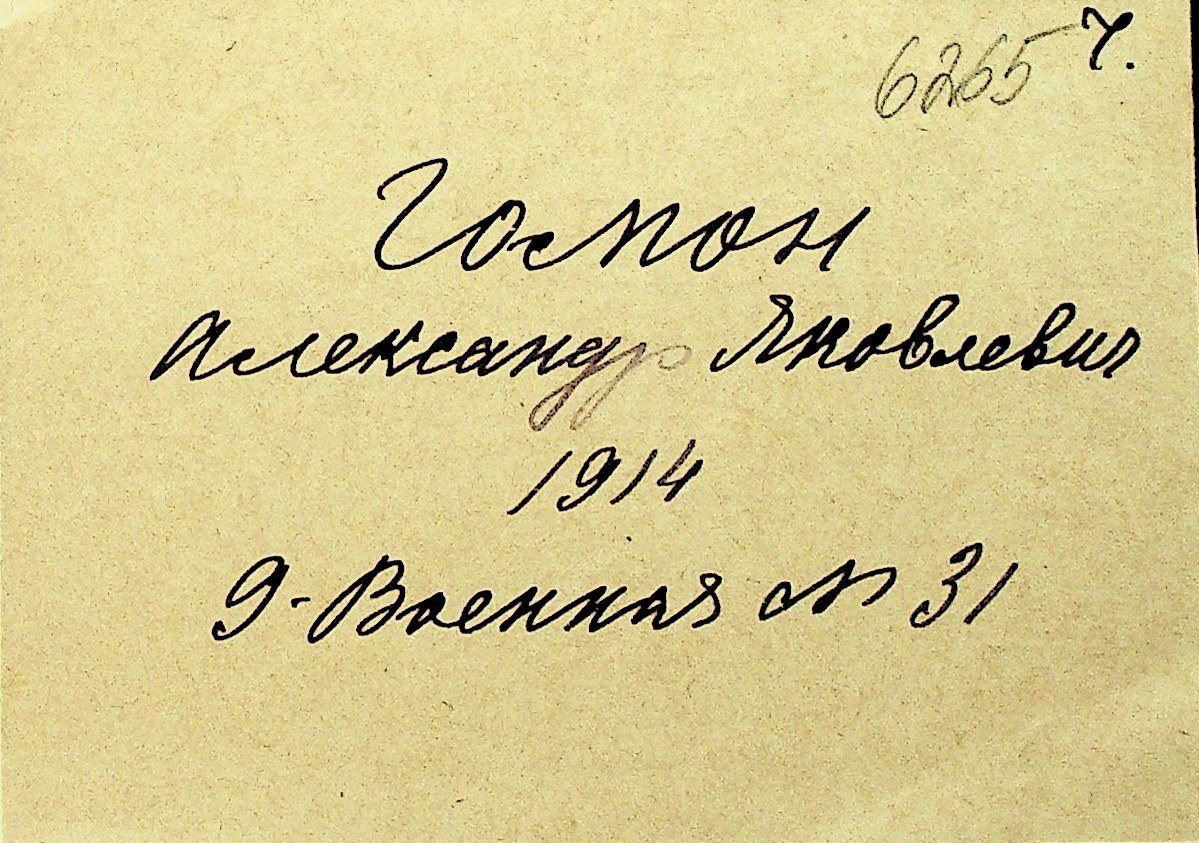 6265
Госмон
Александр Яковлевич
1914
9-Военная № 31